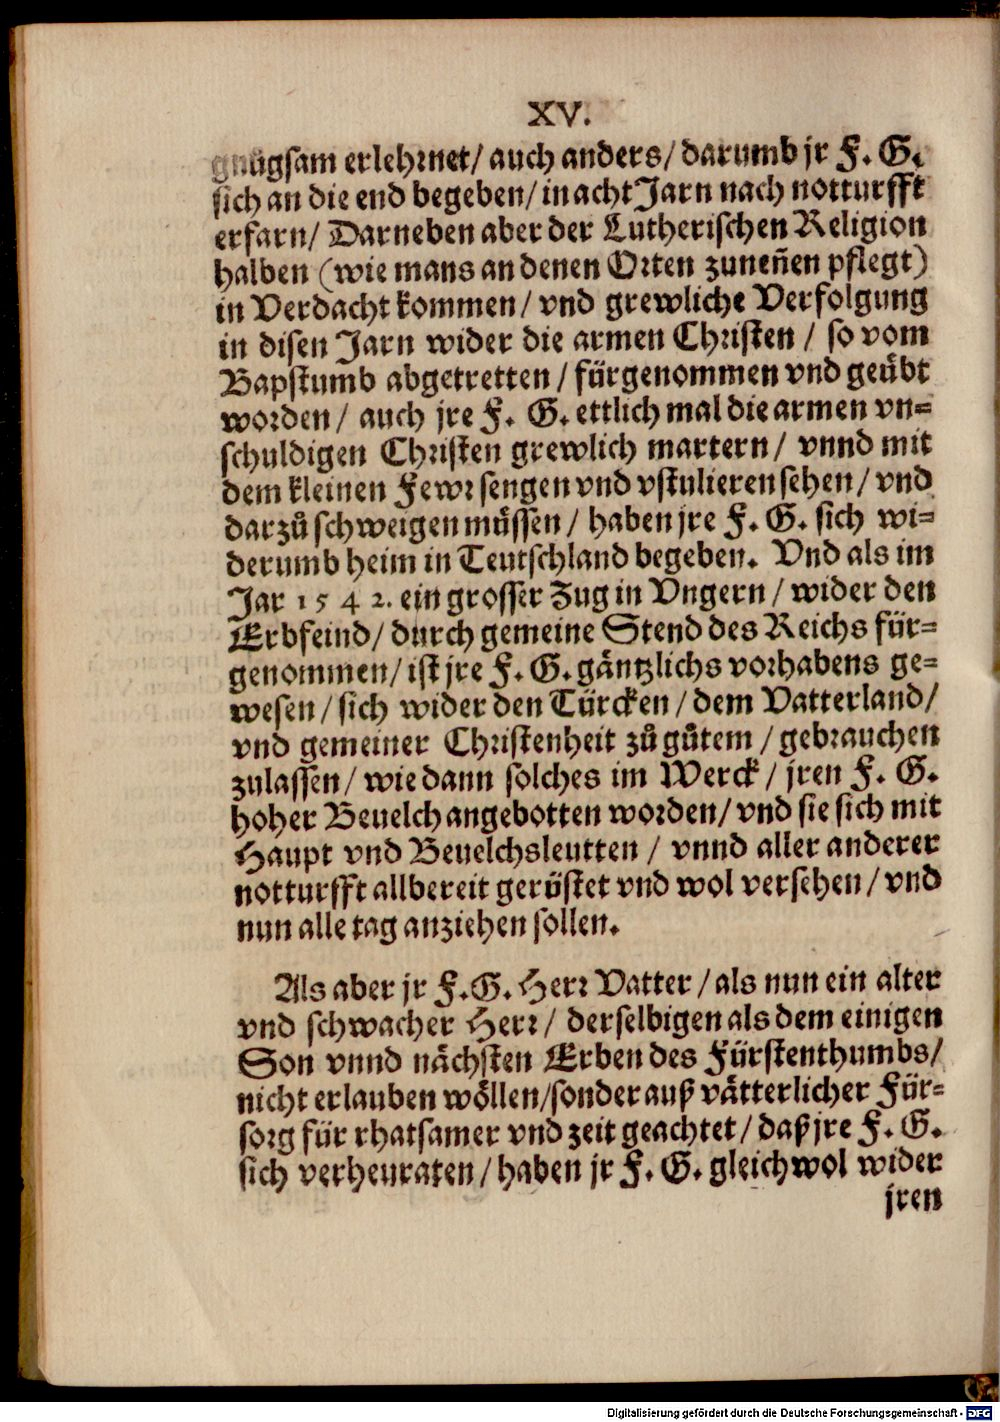 XV.
gnůgsam erlehrnet/ auch anders/ darumb jr F. G.
sich an die end begeben/ in acht Jarn nach notturfft
erfarn/ Darneben aber der Lutherischen Religion
halben (wie mans an denen Orten zuneñen pflegt)
in Verdacht kommen/ vnd grewliche Verfolgung
in disen Jarn wider die armen Christen / so vom
Bapstumb abgetretten / fürgenommen vnd geübt
worden / auch jre F. G. ettlich mal die armen vn=
schuldigen Christen grewlich martern / vnnd mit
dem kleinen Fewr sengen vnd vstulieren sehen / vnd
darzů schweigen müssen / haben jre F. G. sich wi=
derumb heim in Teutschland begeben. Vnd als im
Jar 1542. ein grosser Zug in Vngern / wider den
Erbfeind/ durch gemeine Stend des Reichs für=
genommen/ ist jre F. G. gäntzlichs vorhabens ge=
wesen / sich wider den Türcken / dem Vatterland/
vnd gemeiner Christenheit zů gůtem / gebrauchen
zulassen/ wie dann solches im Werck / jren F. G.
hoher Beuelch angebotten worden/ vnd sie sich mit
Haupt vnd Beuelchsleutten / vnnd aller anderer
notturfft allbereit gerüstet vnd wol versehen / vnd
nun alle tag anziehen sollen.
Als aber jr F. G. Herr Vatter / als nun ein alter
vnd schwacher Herr / derselbigen als dem einigen
Son vnnd nächsten Erben des Fürstenthumbs/
nicht erlauben wöllen/sonder auß vätterlicher Für=
sorg für rhatsamer vnd zeit geachtet / daß jre F. G.
sich verheuraten / haben jr F. G. gleichwol wider
jren
Digitalisierung gefördert durch die Deutsche Forschungsgemeinschaft - DFG